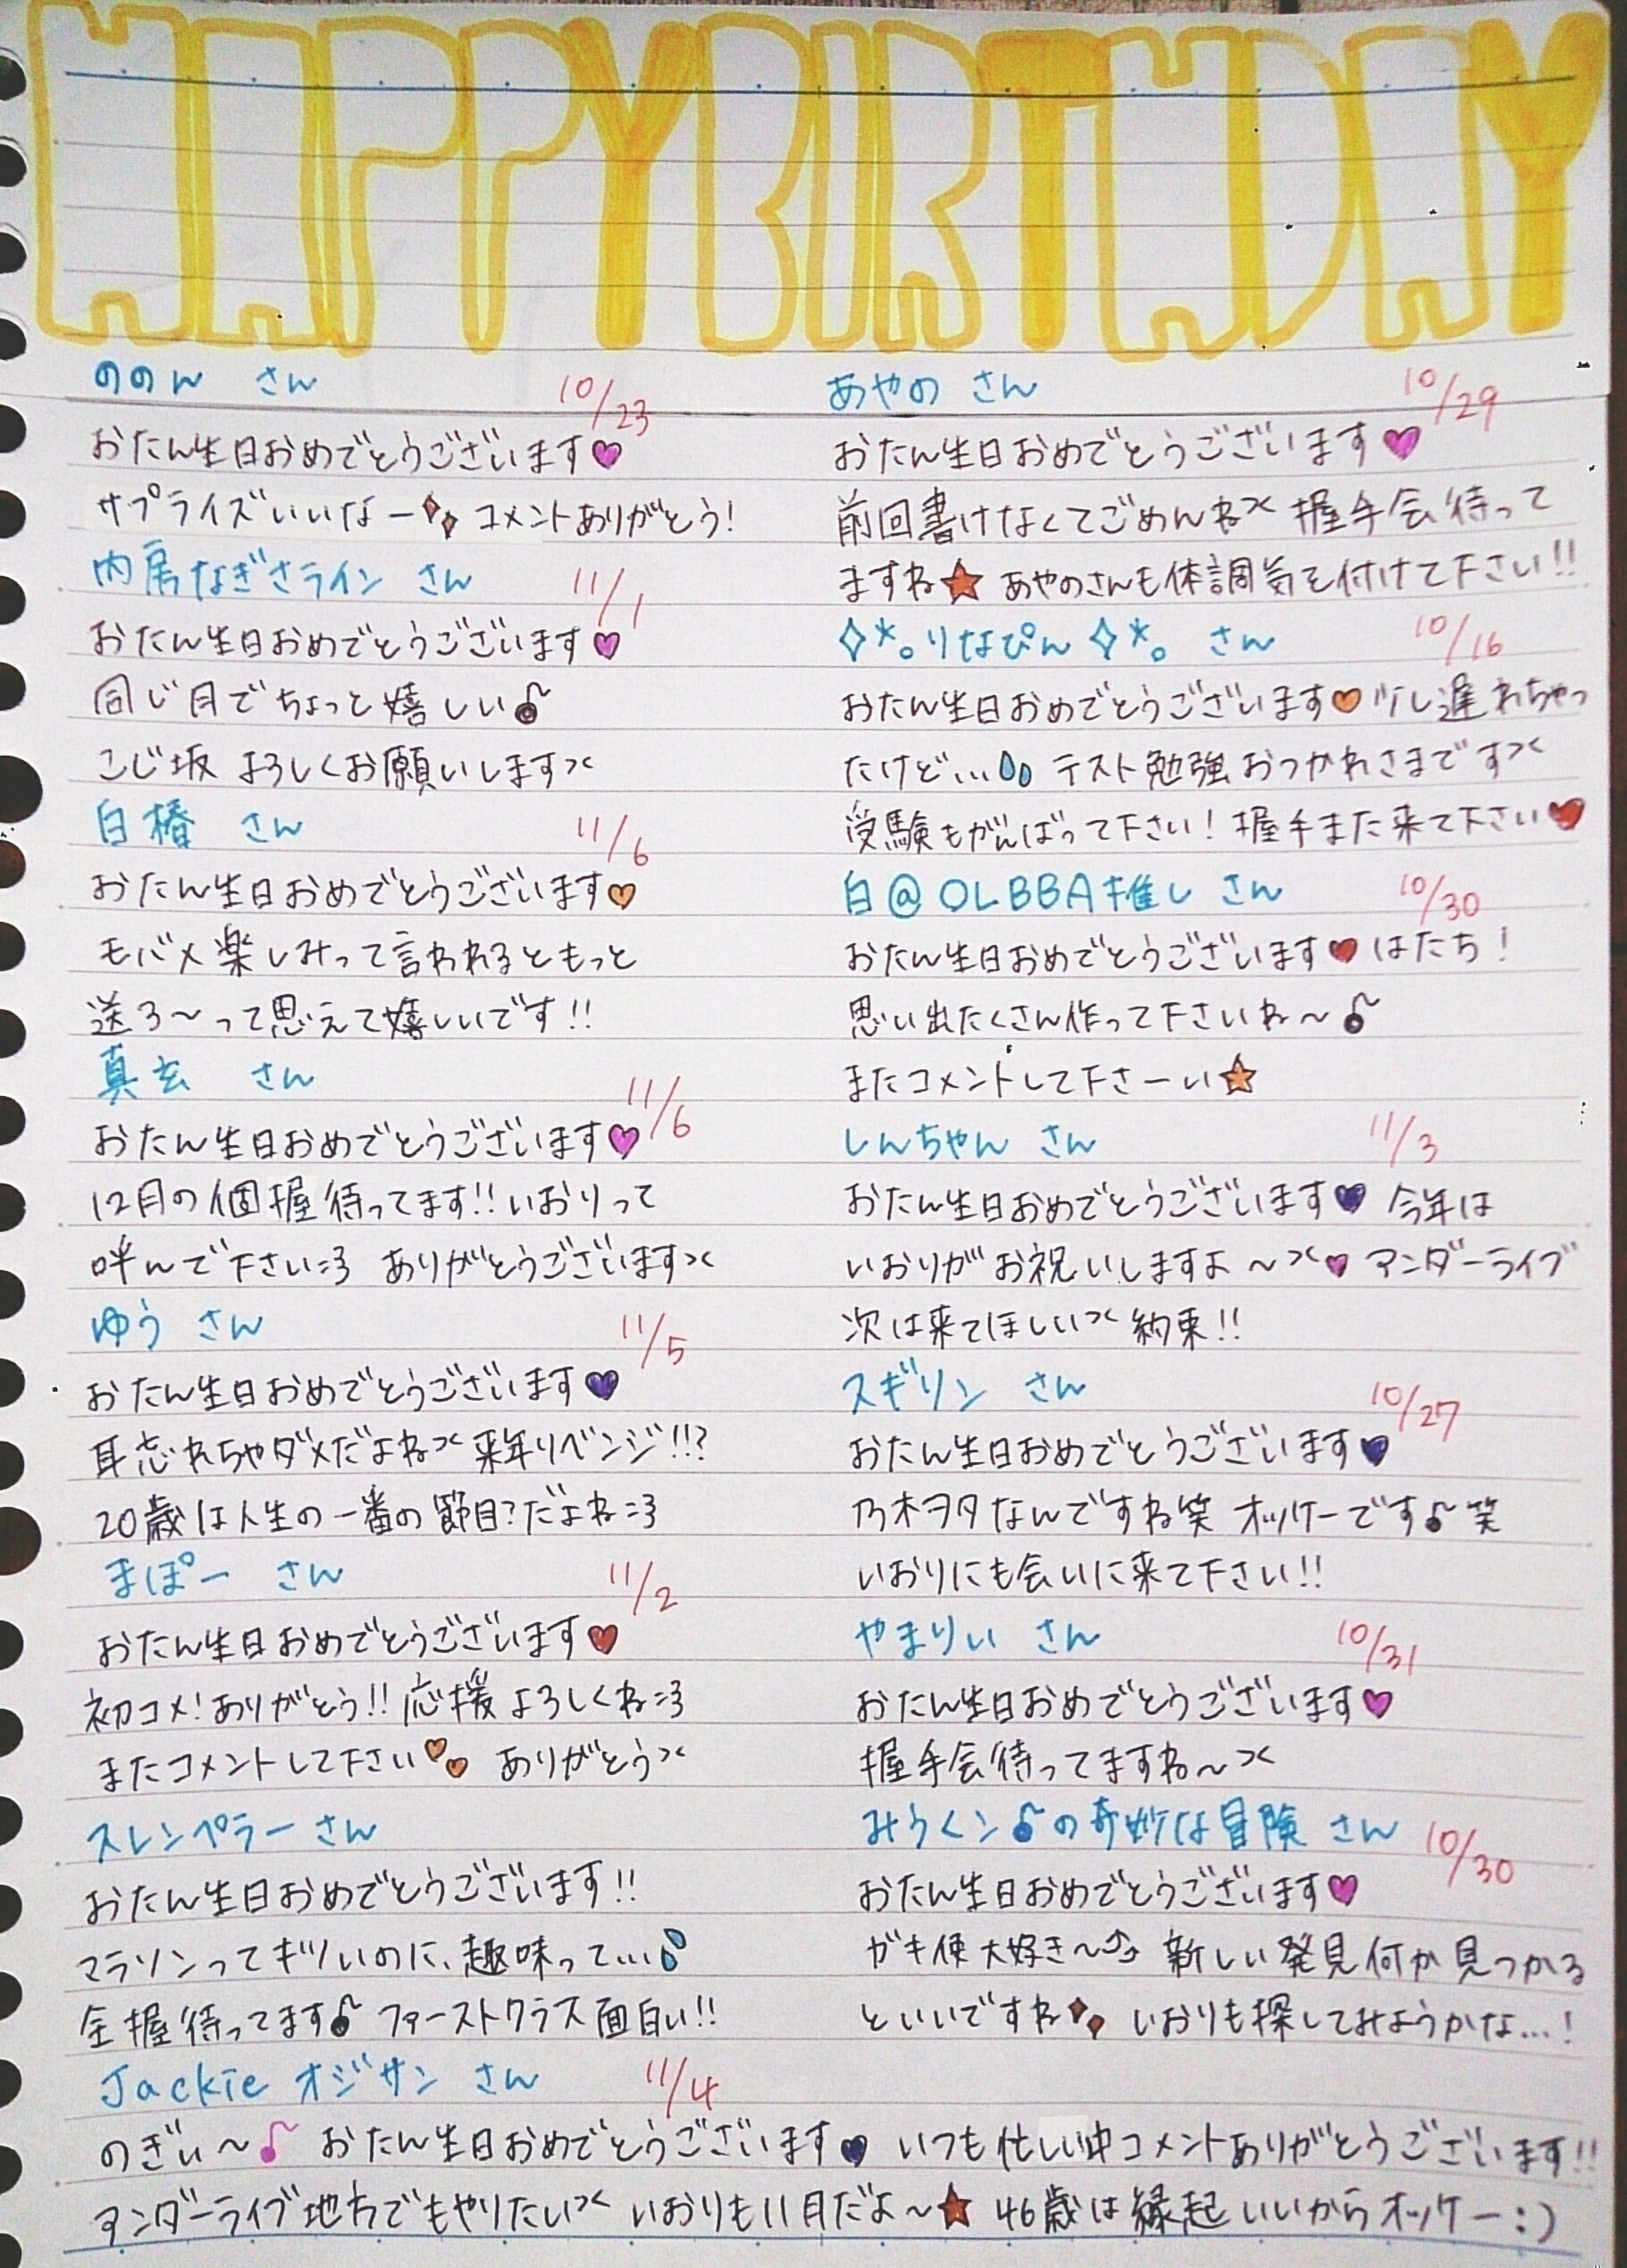 HAPPYBIRTHDAY
ののん さん 10/23
おたん生日おめでとうございます♥
サプライズいいなー コメントありがとう!
内房なぎさライン さん 11/1
おたん生日おめでとうございます♥
同じ月でちょっと嬉しい♪
こじ坂 よろしくお願いします><
白椿 さん 11/6
おたん生日おめでとうございます♥
モバメ楽しみって言われるともっと
送ろ〜って思えて嬉しいです!!
真玄 さん 11/6
おたん生日おめでとうございます♥
12月の個握待ってます!!いおりって
呼んで下さい=3 ありがとうございます><
ゆう さん 11/5
おたん生日おめでとうございます♥
耳忘れちゃダメだよね>< 来年リベンジ!!?
20歳は人生の一番の節目?だよね=3
まぽー さん 11/2
おたん生日おめでとうございます♥
初コメ!ありがとう!!応援よろしくね=3
またコメントして下さい♥♥ ありがとう><
スレンペラー さん
おたん生日おめでとうございます!!
マラソンってキツいのに、趣味って...
全握待ってます♪ ファーストクラス面白い!!
あやの さん 10/29
おたん生日おめでとうございます♥
前回書けなくてごめんね>< 握手会待って
ますね★ あやのさんも体調気を付けて下さい!!
✧*。りなぴん✧*。 さん 10/16
おたん生日おめでとうございます♥少し遅れちゃっ
たけど... テスト勉強おつかれさまです><
受験もがんばって下さい!握手また来て下さい♥
白@OLBBA推し さん 10/30
おたん生日おめでとうございます♥はたち!
思い出たくさん作って下さいね〜♪
またコメントして下さーい★
しんちゃん さん 11/3
おたん生日おめでとうございます♥ 今年は
いおりがお祝いしますよ〜><♥ アンダーライブ
次は来てほしい>< 約束!!
スギリン さん 10/27
おたん生日おめでとうございます♥
乃木ヲタなんですね笑 オッケーです♪笑
いおりにも会いに来て下さい!!
やまりぃ さん 10/31
おたん生日おめでとうございます♥
握手会待ってますね〜><
みうくン♪の奇妙な冒険 さん 10/30
おたん生日おめでとうございます♥
ガキ使大好き〜⤴⤴ 新しい発見何か見つかる
といいですね いおりも探してみようかな...!
Jackie オジサン さん 11/4
のぎぃ〜♪ おたん生日おめでとうございます♥ いつも忙しい中コメントありがとうございます!!
アンダーライブ地方でもやりたい>< いおりも11月だよ〜★ 46歳は縁起いいからオッケー:)